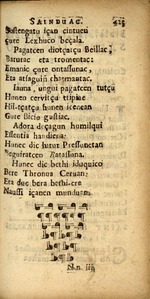 SAINDUAC. 425
Sustengatu içan cintucu
Çure Lexhuco beçala.
Pagatcen diotçatçu Beillac,
Barurac eta tromentac:
Emanic çure ontassunac,
Eta atsaguin chagmautac.
Iauna, ungui pagatcen tutçu
Hunen cervitçu tipiac
Hil-tçatçu hunen icenean
Gure Bicio gustiac.
Adora deçagun humilqui
Essentit handiena:
Hunec dic hitzt Pressunetan
Seguiratcen Batassuna.
Hunec dic bethi iduquico
Bere Thronua Ceruan:
Eta due bera bethi-ere
Naussi içanen munduan.
N.n iiij